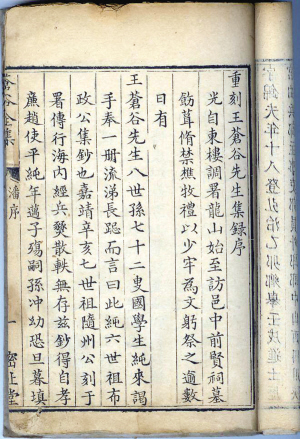 重刻王蒼谷先生集錄序
光自東樓調署龍山始至訪邑中前賢祠墓
飭葺脩禁樵牧禮以少牢為文躬祭之適數
日有
王蒼谷先生八世孫七十二叟國學生純來謁
手奉一冊流涕長跽而言曰此純六世祖布
政公集鈔也嘉靖辛亥七世祖隨州公刻于
署傳行海內經兵燹散軼無存茲鈔得自孝
廉趙使平純年邁子殤嗣孫冲幼恐旦暮填
蒼谷全集
潘序
一
密止堂